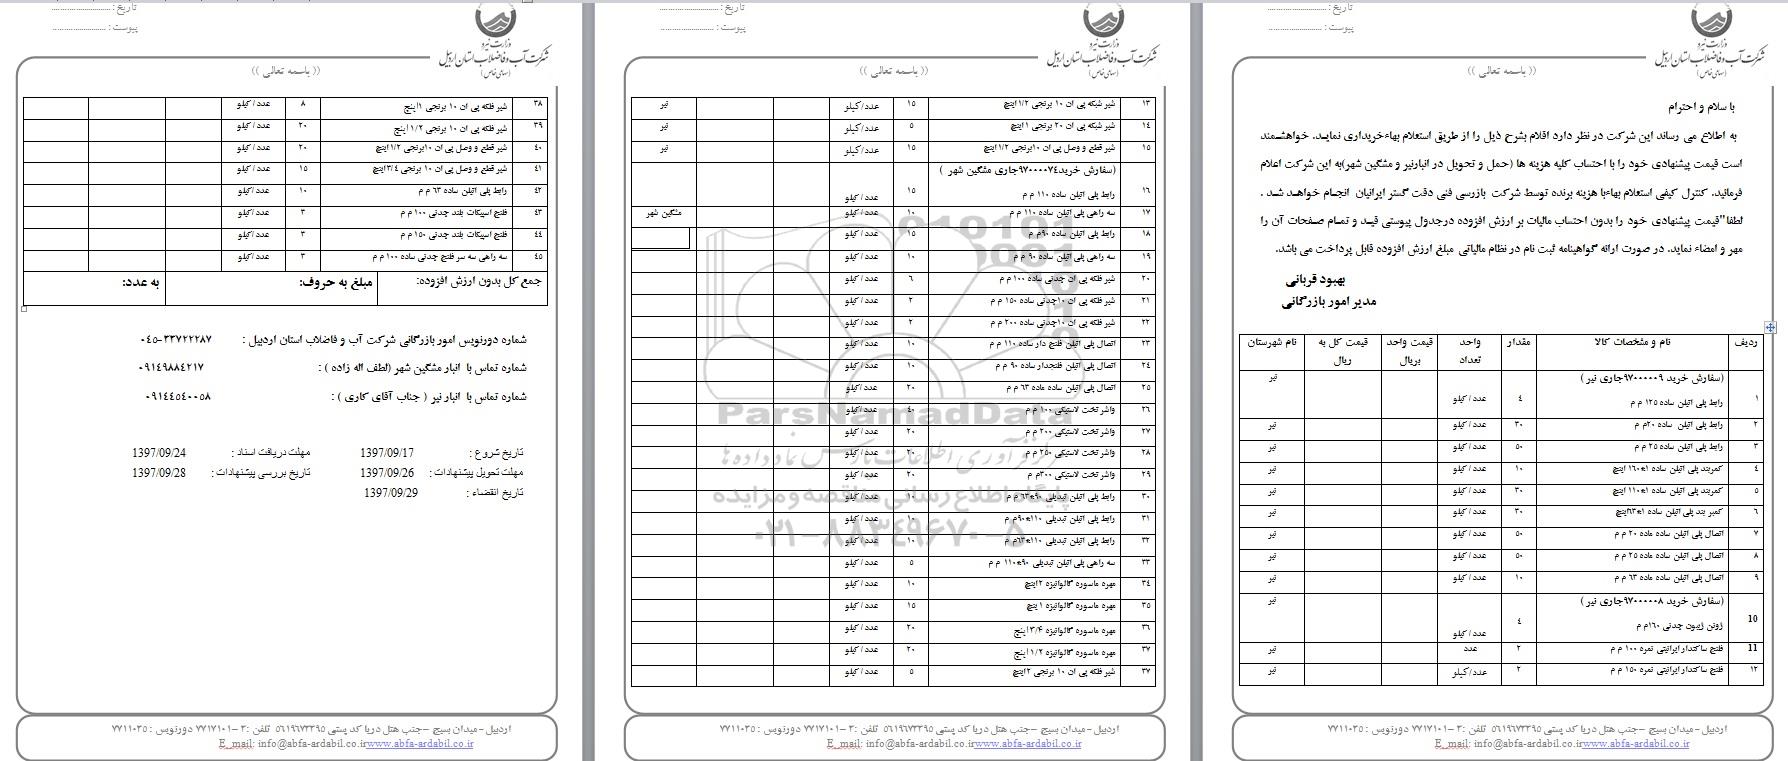 تاریخ : ............................
پیوست : ..........................
وزارت نیرو
شرکت آب و فاضلاب استان اردبیل
(سهامی خاص)
(( باسمه تعالی ))
با سلام و احترام
به اطلاع می رساند این شرکت در نظر دارد اقلام بشرح ذیل را از طریق استعلام بهاءخریداری نماید. خواهشمند
است قیمت پیشنهادی خود را با احتساب کلیه هزینه ها (حمل و تحویل در انبارنیر و مشگین شهر)به این شرکت اعلام
فرمائید. کنترل کیفی استعلام بهاءبا هزینه برنده توسط شرکت بازرسی فنی دقت گستر ایرانیان انجام خواهد شد .
لطفا"قیمت پیشنهادی خود را بدون احتساب مالیات بر ارزش افزوده درجدول پیوستی قید و تمام صفحات آن را
مهر و امضاء نماید. در صورت ارائه گواهینامه ثبت نام در نظام مالیاتی مبلغ ارزش افزوده قابل پرداخت می باشد.
بهبود قربانی
مدیر امور بازرگانی
ردیف نام و مشخصات کالا مقدار واحد تعداد قیمت واحد بریال قیمت کل به ریال نام شهرستان
(سفارش خرید ۹۷۰۰۰۰۰۹جاری نیر ) نیر
۱ رابط پلی اتیلن ساده ۱۲۵ م م ۴ عدد/ کیلو
۲ رابط پلی اتیلن ساده ۲۰م م ۳۰ عدد/ کیلو نیر
۳ رابط پلی اتیلن ساده ۲۵ م م ۵۰ عدد/ کیلو نیر
۴ کمربند پلی اتیلن ساده ۱*۱۶۰ اینچ ۱۰ عدد/ کیلو نیر
۵ کمربند پلی اتیلن ساده ۱*۱۱۰ اینچ ۳۰ عدد/ کیلو نیر
۶ کمبر بند پلی اتیلن ساده ۱*۶۳اینچ ۳۰ عدد/ کیلو نیر
۷ اتصال پلی اتیلن ساده ماده ۲۰ م م ۵۰ عدد/ کیلو نیر
۸ اتصال پلی اتیلن ساده ماده ۲۵ م م ۵۰ عدد/ کیلو نیر
۹ اتصال پلی اتیلن ساده ماده ۶۳ م م ۱۰ عدد/ کیلو نیر
(سفارش خرید ۹۷۰۰۰۰۰۸جاری نیر ) نیر
10 ژوئن ژیبون چدنی ۱۶۰م م ۴ عدد/ کیلو
11 فلنج ساکتدار ایرانیتی نمره ۱۰۰ م م ۲ عدد نیر
۱۲ فلنج ساکتدار ایرانیتی نمره ۱۵۰ م م ۲ عدد/کیلو نیر
اردبیل -میدان بسیج -جنب هتل دریا کد پستی ۵۶۱۹۶۷۳۳۹۵ تلفن :۳ -۷۷۱۷۱۰۱ دورنویس : ۷۷۱۱۰۳۵
E_mail: info@abfa-ardabil.co.irwww.abfa-ardabil.co.ir
تاریخ : ............................
پیوست : ..........................
وزارت نیرو
شرکت آب و فاضلاب استان اردبیل
(سهامی خاص)
(( باسمه تعالی ))
۱۳ شیر شبکه پی ان ۱۰ برنجی ۱/۲اینچ ۱۵ عدد/کیلو نیر
۱۴ شیر شبکه پی ان ۲۰ برنجی ۱ اینچ ۵ عدد/کیلو نیر
۱۵ شیر قطع و وصل پی ان ۱۰برنجی ۱/۲اینچ ۱۵ عدد/کیلو نیر
(سفارش خرید۹۷۰۰۰۰۷۴جاری مشگین شهر )
۱۶ رابط پلی اتیلن ساده ۱۱۰ م م ۱۵ عدد/ کیلو
۱۷ سه راهی پلی اتیلن ساده ۱۱۰ م م ۱۰ عدد/ کیلو مشگین شهر
۱۸ رابط پلی اتیلن ساده ۹۰م م ۱۵ عدد/ کیلو
۱۹ سه راهی پلی اتیلن ساده ۹۰ م م ۱۰ عدد/ کیلو
۲۰ شیر فلکه پی ان چدنی ساده ۱۰۰ م م ۶ عدد/ کیلو
۲۱ شیر فلکه پی ان ۱۰چدنی ساده ۱۵۰ م م ۲ عدد/ کیلو
۲۲ شیر فلکه پی ان ۱۰چدنی ساده ۲۰۰ م م ۲ عدد/ کیلو
۲۳ اتصال پلی اتیلن فلنج دار ساده ۱۱۰ م م ۱۰ عدد/ کیلو
۲۴ اتصال پلی اتیلن فلنجدار ساده ۹۰ م م ۱۰ عدد/ کیلو
۲۵ اتصال پلی اتیلن ساده ماده ۶۳ م م ۲۰ عدد/ کیلو
۲۶ واشر تخت لاستیکی ۱۰۰ م م ۴۰ عدد/ کیلو
۲۷ واشر تخت لاستیکی ۲۰۰ م م ۲۰ عدد/ کیلو
۲۸ واشر تخت لاستیکی ۲۵۰ م م ۲۰ عدد/ کیلو
۲۹ واشر تخت لاستیکی ۳۰۰م م ۲۰ عدد/ کیلو
۳۰ رابط پلی اتیلن تبدیلی ۹۰*۶۳ م م ۱۰ عدد/ کیلو
۳۱ رابط پلی اتیلن تبدیلی ۱۱۰*۹۰م م ۱۰ عدد/ کیلو
۳۲ رابط پلی اتیلن تبدیلی ۱۱۰*۶۳م م ۱۰ عدد/ کیلو
۳۳ سه راهی پلی اتیلن تبدیلی ۹۰*۱۱۰ م م ۵ عدد/ کیلو
۳۴ مهره ماسوره گالوانیزه ۲اینچ ۱۰ عدد/ کیلو
۳۵ مهره ماسوره گالوانیزه ۱ اینچ ۱۵ عدد/ کیلو
۳۶ مهره ماسوره گالوانیزه ۳/۴ اینچ ۲۰ عدد/ کیلو
۳۷ مهره ماسوره گالوانیزه ۱/۲ اینچ ۲۰ عدد/ کیلو
۳۷ شیر فلکه پی ان ۱۰ برنجی ۲اینچ ۵ عدد/ کیلو
ParsNamadData
مرکز فرآوری اطلاعات پارس نماد داده ها
پایگاه اطلاع رسانی مناقصه و مزایده
۰۲۱-۸۸۳۴۹۶۷۰-۵
اردبیل -میدان بسیج -جنب هتل دریا کد پستی ۵۶۱۹۶۷۳۳۹۵ تلفن :۳ -۷۷۱۷۱۰۱ دورنویس : ۷۷۱۱۰۳۵
E_mail: info@abfa-ardabil.co.irwww.abfa-ardabil.co.ir
تاریخ : ............................
پیوست : ..........................
وزارت نیرو
شرکت آب و فاضلاب استان اردبیل
(سهامی خاص)
(( باسمه تعالی ))
۳۸ شیر فلکه پی ان ۱۰ برنجی ۱اینچ ۸ عدد/ کیلو
۳۹ شیر فلکه پی ان ۱۰ برنجی ۱/۲ اینچ ۲۰ عدد/ کیلو
۴۰ شیر قطع و وصل پی ان ۱۰برنجی ۱/۲اینچ ۲۰ عدد/ کیلو
۴۱ شیر قطع و وصل پی ان ۱۰ برنجی ۳/۴اینچ ۱۵ عدد/ کیلو
۴۲ رابط پلی اتیلن ساده ۶۳ م م ۱۰ عدد/ کیلو
۴۳ فلنج اسپیکات بلند چدنی ۱۰۰ م م ۳ عدد/ کیلو
۴۴ فلنج اسپیکات بلند چدنی ۱۵۰ م م ۳ عدد/ کیلو
۴۵ سه راهی سه سر فلنج چدنی ساده ۱۰۰ م م ۳ عدد/ کیلو
جمع کل بدون ارزش افزوده: مبلغ به حروف: به عدد:
شماره دورنویس امور بازرگانی شرکت آب و فاضلاب استان اردبیل : ۰۴۵-۳۳۷۲۲۲۸۷
شماره تماس با انبار مشگین شهر (لطف اله زاده ) : ۰۹۱۴۹۸۸۴۲۱۷
شماره تماس با انبار نیر ( جناب آقای کاری ) : ۰۹۱۴۴۵۴۰۰۵۸
تاریخ شروع : 1397/09/17 مهلت دریافت اسناد : 1397/09/24
مهلت تحویل پیشنهادات : 1397/09/26 تاریخ بررسی پیشنهادات : 1397/09/28
تاریخ انقضاء : 1397/09/29
اردبیل -میدان بسیج -جنب هتل دریا کد پستی ۵۶۱۹۶۷۳۳۹۵ تلفن :۳ -۷۷۱۷۱۰۱ دورنویس : ۷۷۱۱۰۳۵
E_mail: info@abfa-ardabil.co.irwww.abfa-ardabil.co.ir